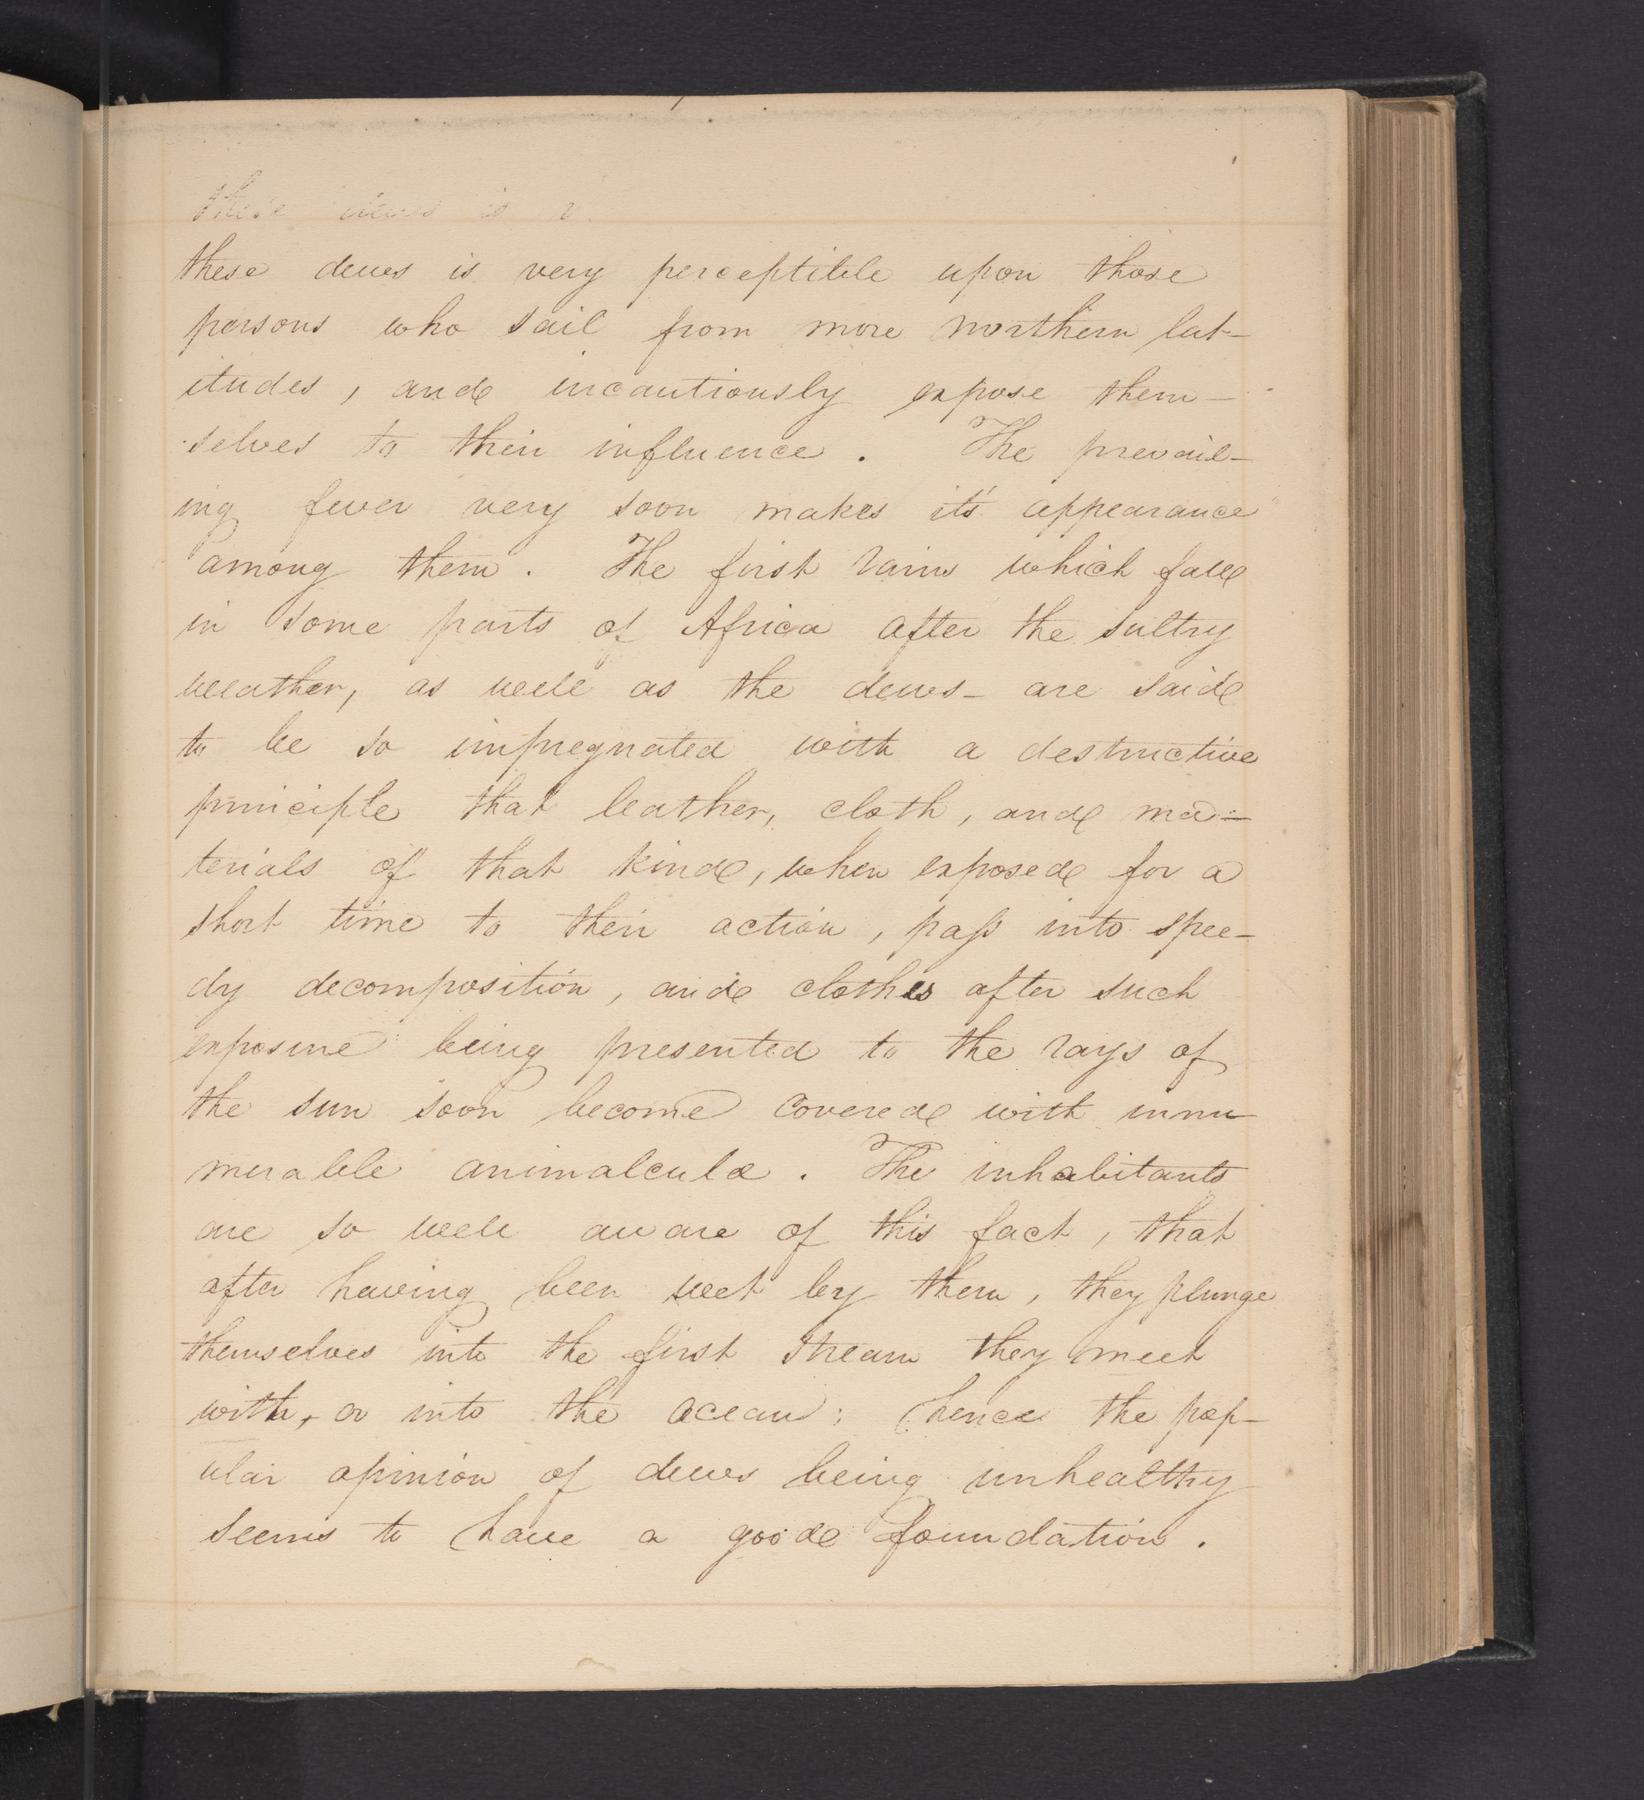 these dews is v
these dews is very perceptible upon those
persons who sail from more northern lat-
itudes, and incautiously expose them-
selves to their influence. The prevail-
ing fever very soon makes it's appearance
among them. The first rains which fall
in some parts of Africa after the sultry
weather, as well as the dews- are said
to be so impregnated with a destructive
principle that leather, cloth, and ma-
terials of that kind, when exposed for a
short time to their action, pass into spee-
dy decomposition, and clothes after such
exposure being presented to the rays of
the sun soon become covered with innu-
merable animalculæ. The inhabitants
are so well aware of this fact, that
after having been wet by them, they plunge
themselves into the first stream they meet
with, or into the ocean: hence the pop-
ular opinion of dews being unhealthy
seems to have a good foundation.